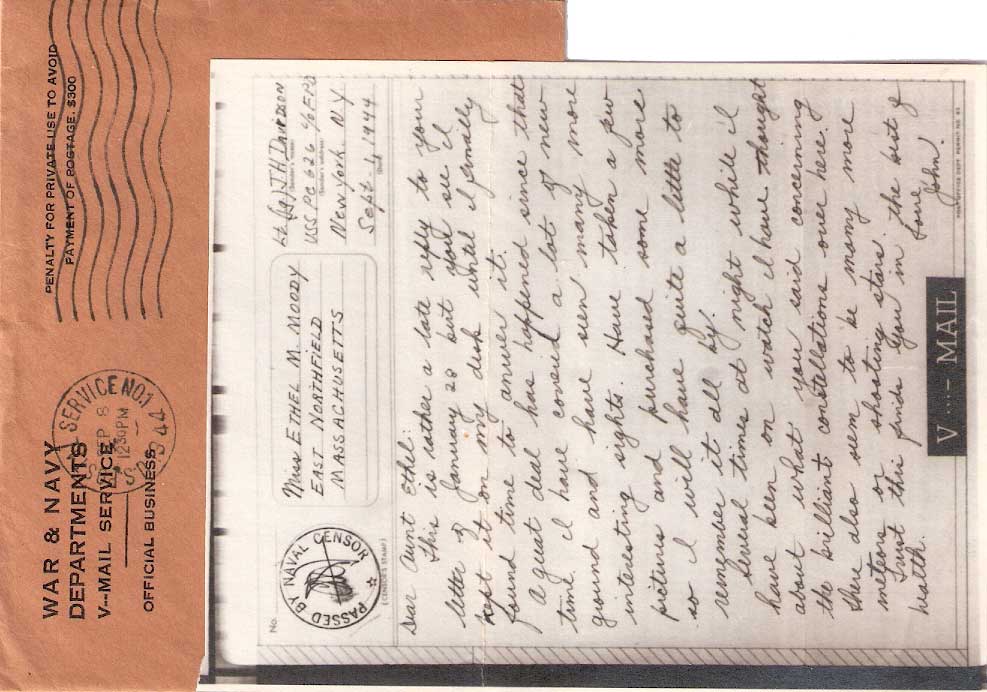 WAR & NAVY
DEPARTMENTS
V---MAIL SERVICE
OFFICIAL BUSINESS
PENALTY FOR PRIVATE USE TO AVOID
PAYMENT OF POSTAGE, $300
SERVICE NO.1
SEP 8
12 30 PM
1944
No.
PASSED BY NAVAL CENSOR
(CENSOR'S STAMP)
Miss ETHEL M. MOODY
EAST NORTHFIELD
MASSACHUSETTS
Lt (jg) J.H. DAVIDSON
(Sender's name)
USS PC 626 c/o FPO
(Sender's address)
New York, NY
Sept. 4 1944
(Date)
Dear Aunt Ethel:
This is rather a late reply to your
letter of January 28 but you see I
kept it on my desk until I finally
found time to answer it.
A great deal has happened since that
time. I have covered a lot of new
ground and have seen many more
interesting sights. Have taken a few
pictures and purchased some more
so I will have quite a little to
remember it all by.
Several times at night while I
have been on watch I have thought
about what you said concerning
the brilliant constellations over here.
There also seem to be many more
meteors or shooting stars.
Trust this finds you in the best of
health. Love,
John.
V...- MAIL